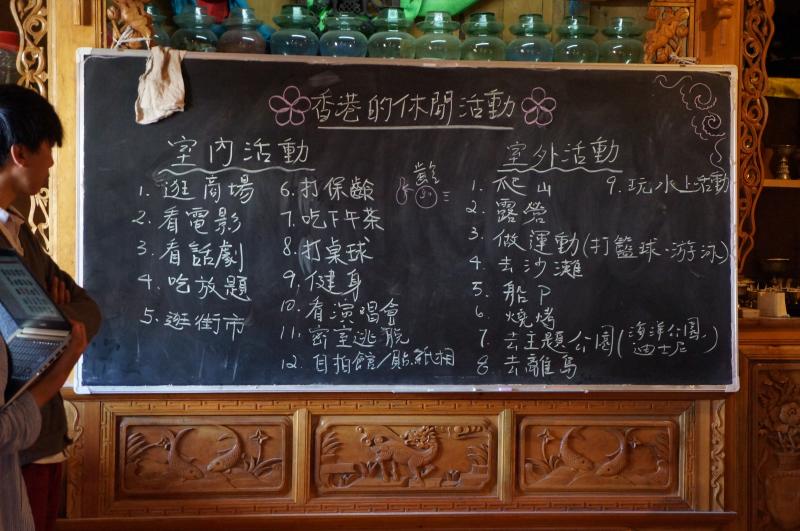 香港的休閒活動
室內活動
1. 逛商場
2. 看電影
3. 看話劇
4. 吃放題
5. 逛街市
6. 打保齡
齡
7. 吃下午茶
8. 打桌球
9. 健身
10. 看演唱會
11. 密室逃脫
12. 自拍館/貼紙相
室外活動
1. 爬山
2. 露營
3. 做運動(打籃球·游泳)
4. 去沙灘
5. 船P
6. 燒烤
7. 去主題公園(海洋公園、迪士尼)
8. 去離島
9. 玩水上活動